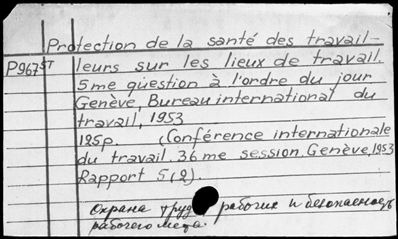 Protection de la santé des travail-
P967ST leurs sur les lieux de travail.
5me question à l'ordre du jour
Genève, Bureau international du
travail, 1953
125p. (Conférence internationale
du travail. 36me session. Genève, 1953
Rapport 5(2).
Охрана труда рабочих и безопасность
рабочего места.